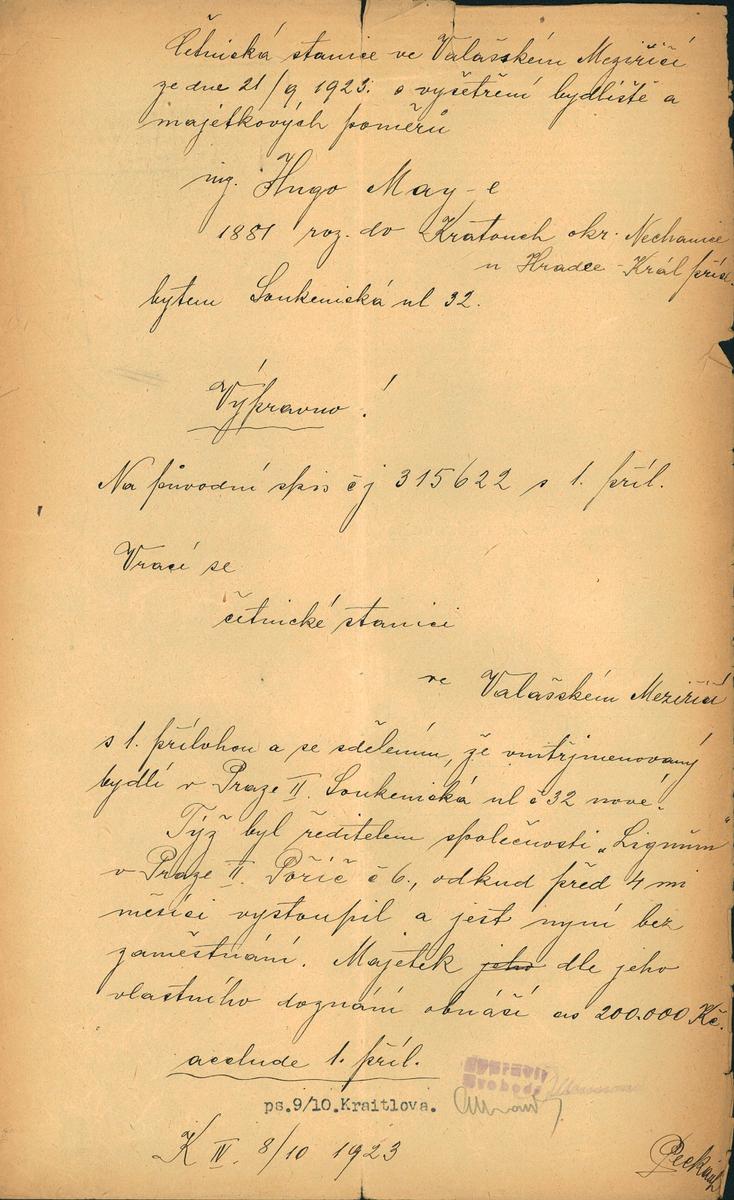 Četnická stanice ve Valašském Meziříčí
ze dne 21/9 1923. o vyšetření bydliště a
majetkových poměrů
ing. Hugo May-e
1881 roz. do Kratonoh okr. Nechanice
u Hradce-Král přísl.
bytem Soukenická ul 32.
Výpravno!
Na původní spis čj 315622 s 1. příl.
Vrací se
četnické stanici
ve Valašském Meziříčí
s 1. přílohou a se sdělením, že vnitřjmenovaný
bydlí v Praze II. Soukenická ul č 32 nové.
Týž byl ředitelem společnosti „Lignum"
v Praze II. Poříč č 6., odkud před 4 mi
měsíci vystoupil a jest nyní bez
zaměstnání. Majetek jeho dle jeho
vlastního doznání obnáší as 200.000 Kč.
acclude 1. příl.
Vypravit
Svoboda
ps.9/10.Kraitlova.
K IV. 8/10 1923